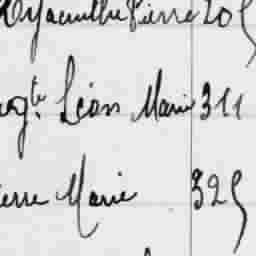 Hyacinthe Pierre 205
Aug.te Léon Marie 311
Pierre Marie 325